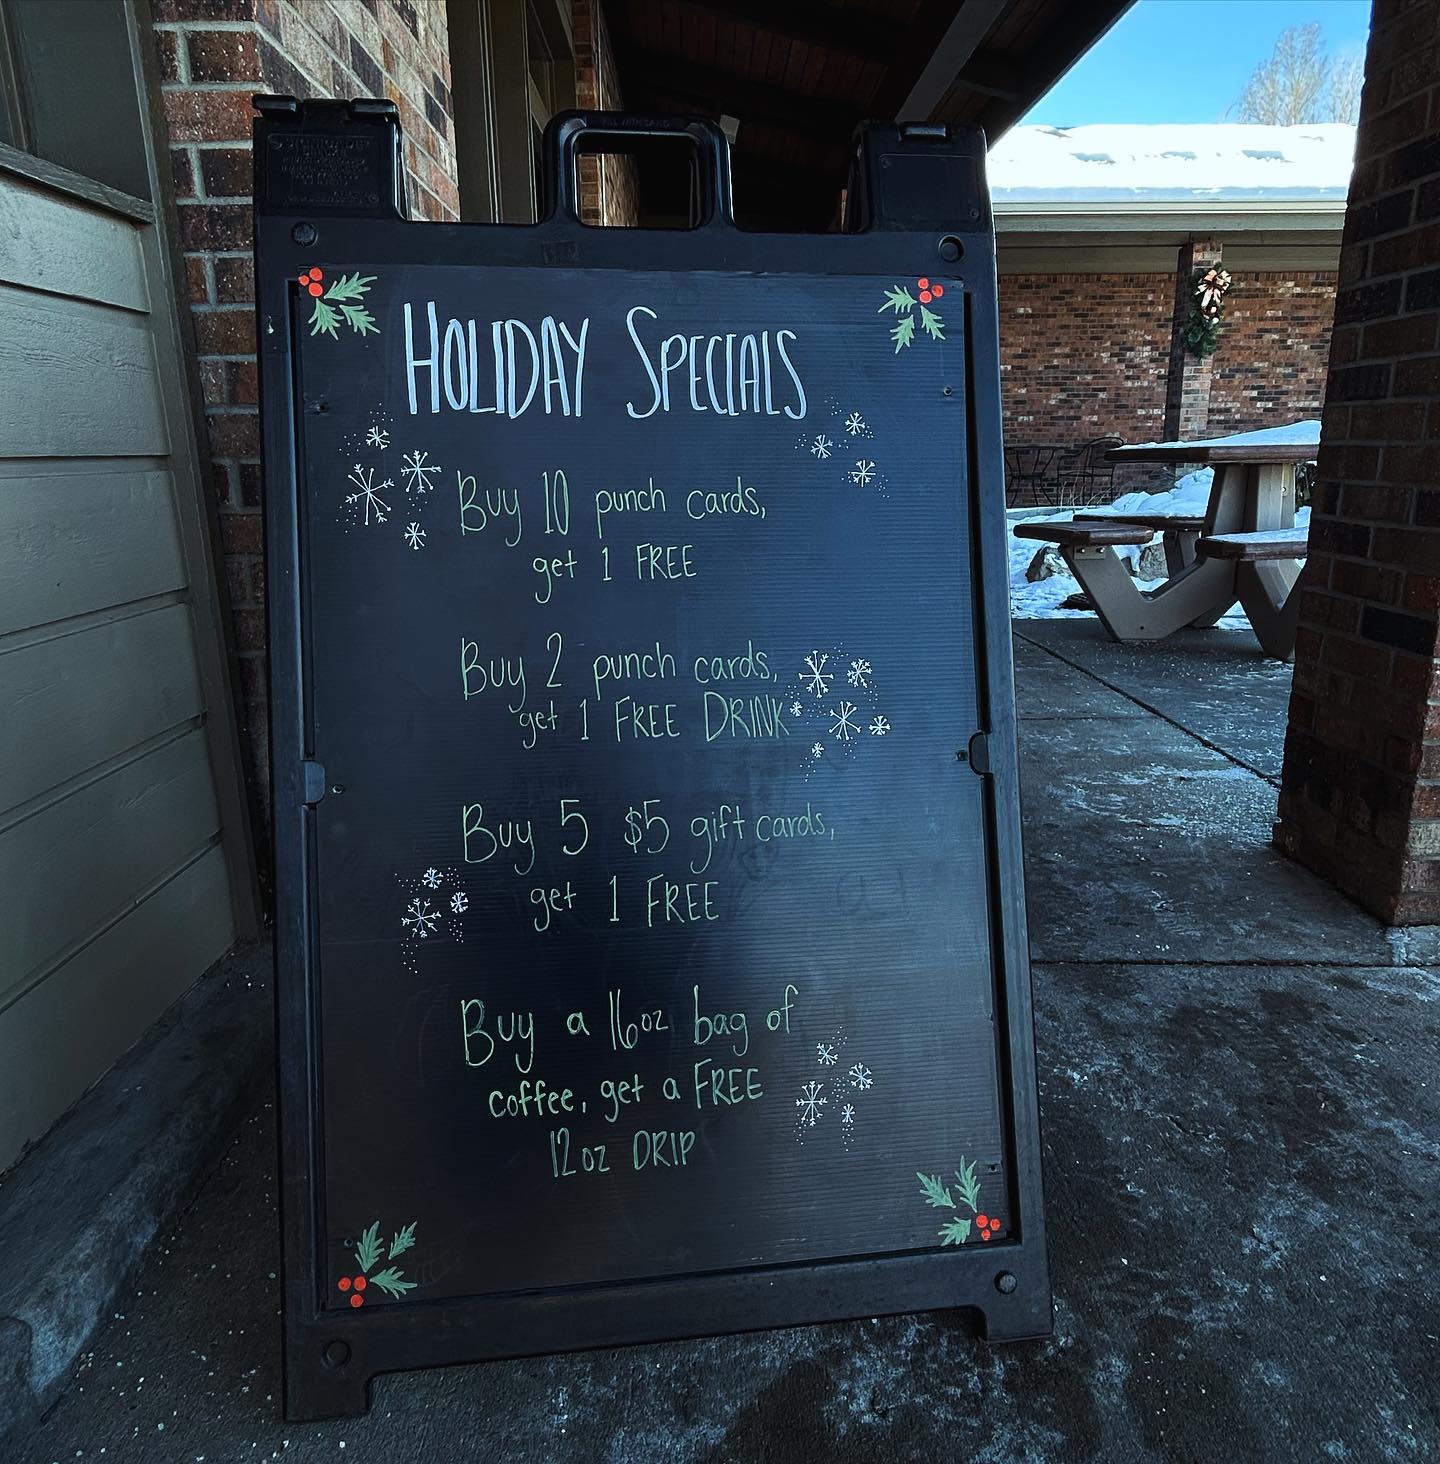 HOLIDAY SPECIALS
Buy 10 punch cards,
get 1 FREE
Buy 2 punch cards,
get 1 FREE DRINK
Buy 5 $5 gift cards,
get 1 FREE
Buy a 16oz bag of
coffee, get a FREE
12oz DRIP